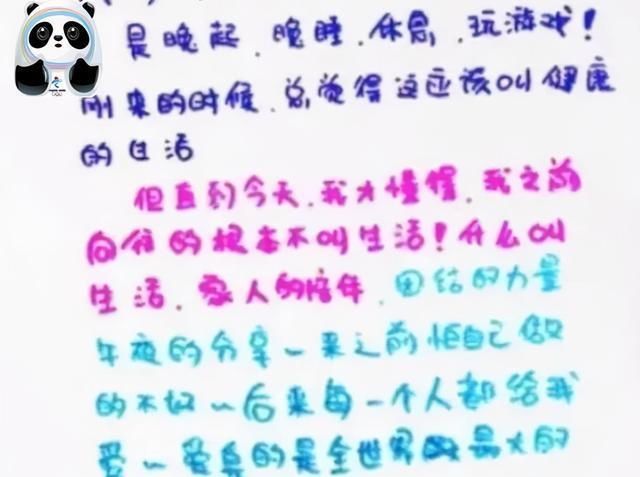 是晚起、晚睡、休息、玩游戏！
刚来的时候、总觉得这应该叫健康
的生活
但直到今天、我才懂得、我之前
向往的根本不叫生活！什么叫
生活、家人的陪伴、团结的力量
午夜的分享～来之前怕自己做
的不好～后来每一个人都给我
爱～爱真的是全世界最大的